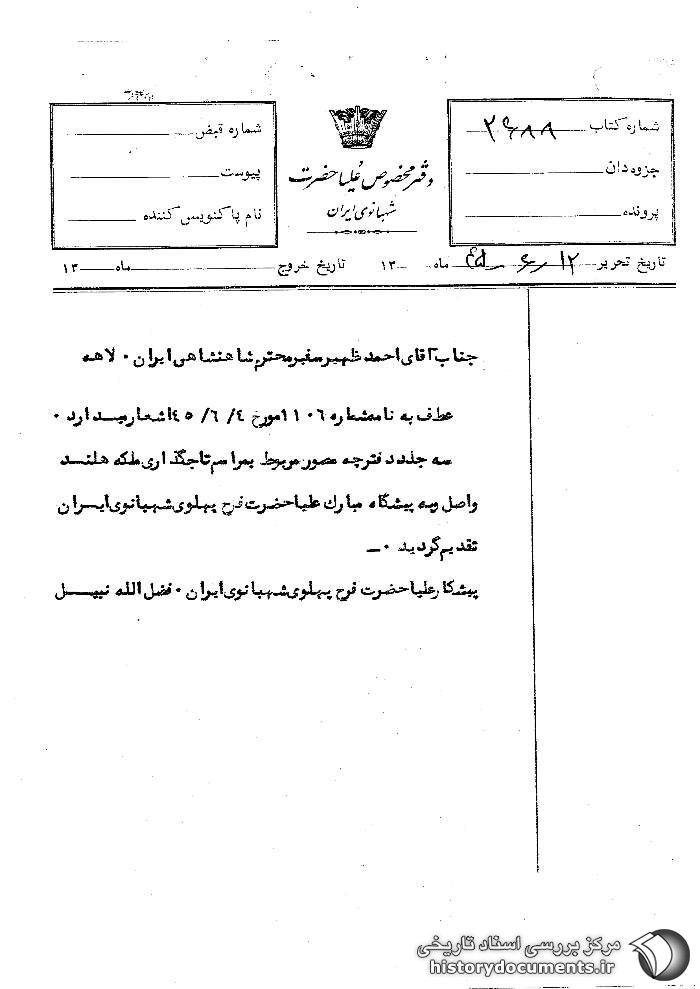 شماره کتاب ۲۶۸۸
جزوه‌دان
پرونده
دفتر مخصوص علیاحضرت
شهبانوی ایران
شماره قبض
پیوست
نام پاکنویس کننده
تاریخ تحریر ۱۲ر۶ر۴۵ ماه ۱۳ تاریخ خروج ماه ۱۳
جناب آقای احمد ظهیر سفیر محترم شاهنشاهی ایران ۰ لاهه
عطف به نامه شماره ۱۱۰۶ مورخ ۴/ ۶/ ۴۵ اشعار میدارد ۰
سه جلد دفترچه مصور مربوط بمراسم تاجگذاری ملکه هلند
واصل و به پیشگاه مبارک علیاحضرت فرح پهلوی شهبانوی ایران
تقدیم گردید ۰ـ
پیشکار علیاحضرت فرح پهلوی شهبانوی ایران ۰ فضل الله نبیل
مرکز بررسی اسناد تاریخی
historydocuments.ir